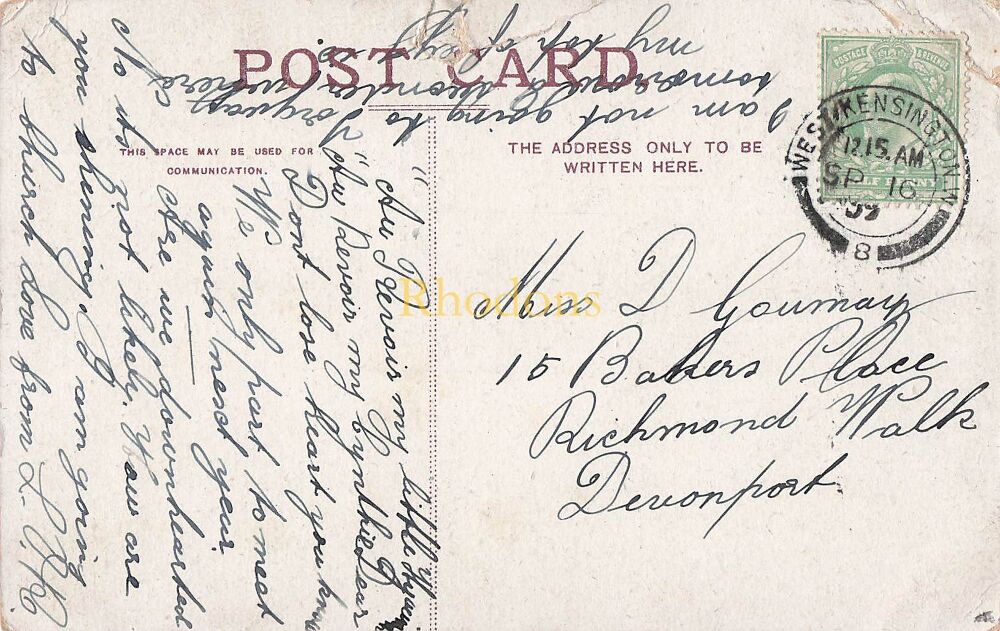 POST CARD.
THIS SPACE MAY BE USED FOR COMMUNICATION.
THE ADDRESS ONLY TO BE WRITTEN HERE.
POSTAGE & REVENUE
WEST KENSINGTON
12.15.AM
SP 16
09
8
Miss D Gournay
15 Bakers Place
Richmond Walk
Devonport.
" Au Revoir my little
" Au Revoir my
Dont lose heart you know
We only part to meet
again next year
Are we downhearted
No its not likely. How are
you shining. I am going
to church Love from L.
I am not going to Torquay
tomorrow
my
Rhodons